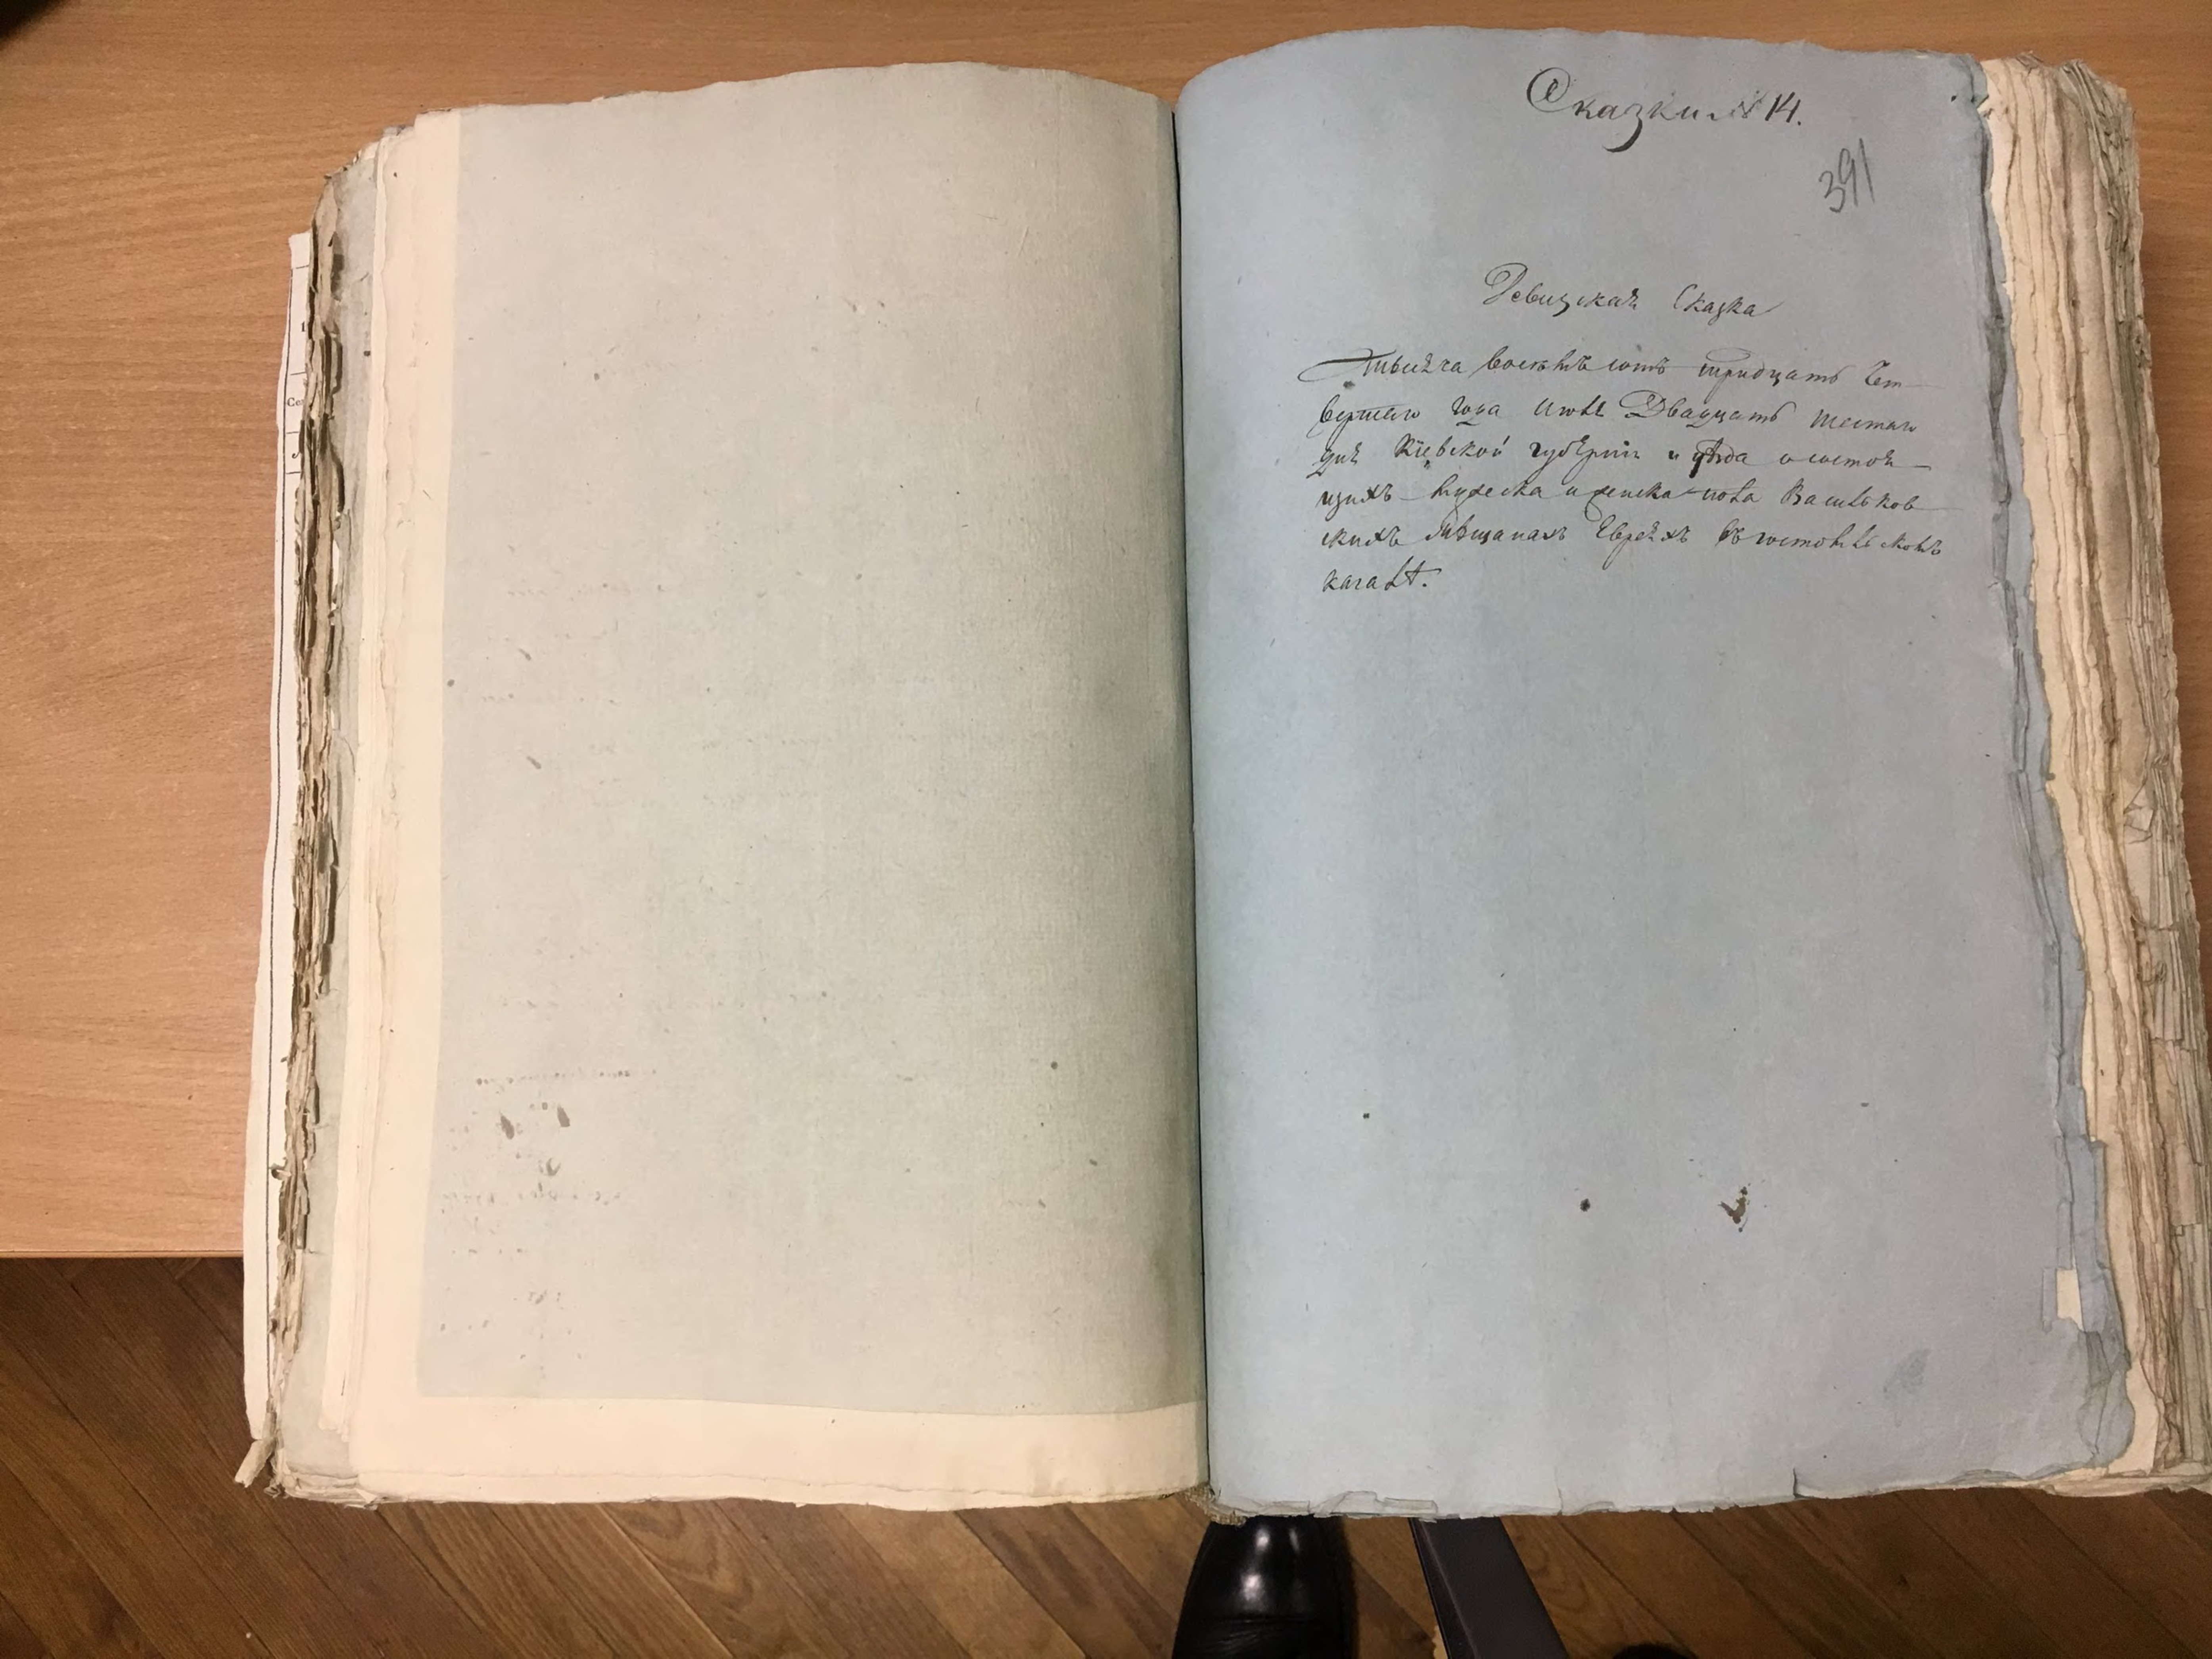 Сказки № 14.
391
Ревизская Сказка
Тысяча восемь сотъ тридцать чет-
вертаго года Июля Двадцать шестаго
дня Кіевской губерніи и уѣзда о состоя-
щихъ мужеска и женска пола Васильков-
скихъ мѣщанахъ Евреяхъ въ
кагалѣ.
Со